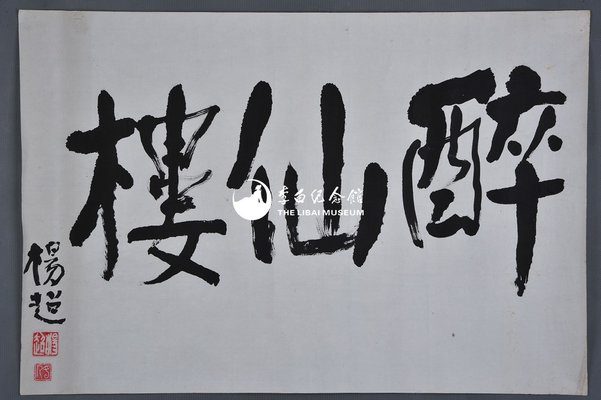 醉仙樓
楊超
李白纪念馆
THE LIBAI MUSEUM